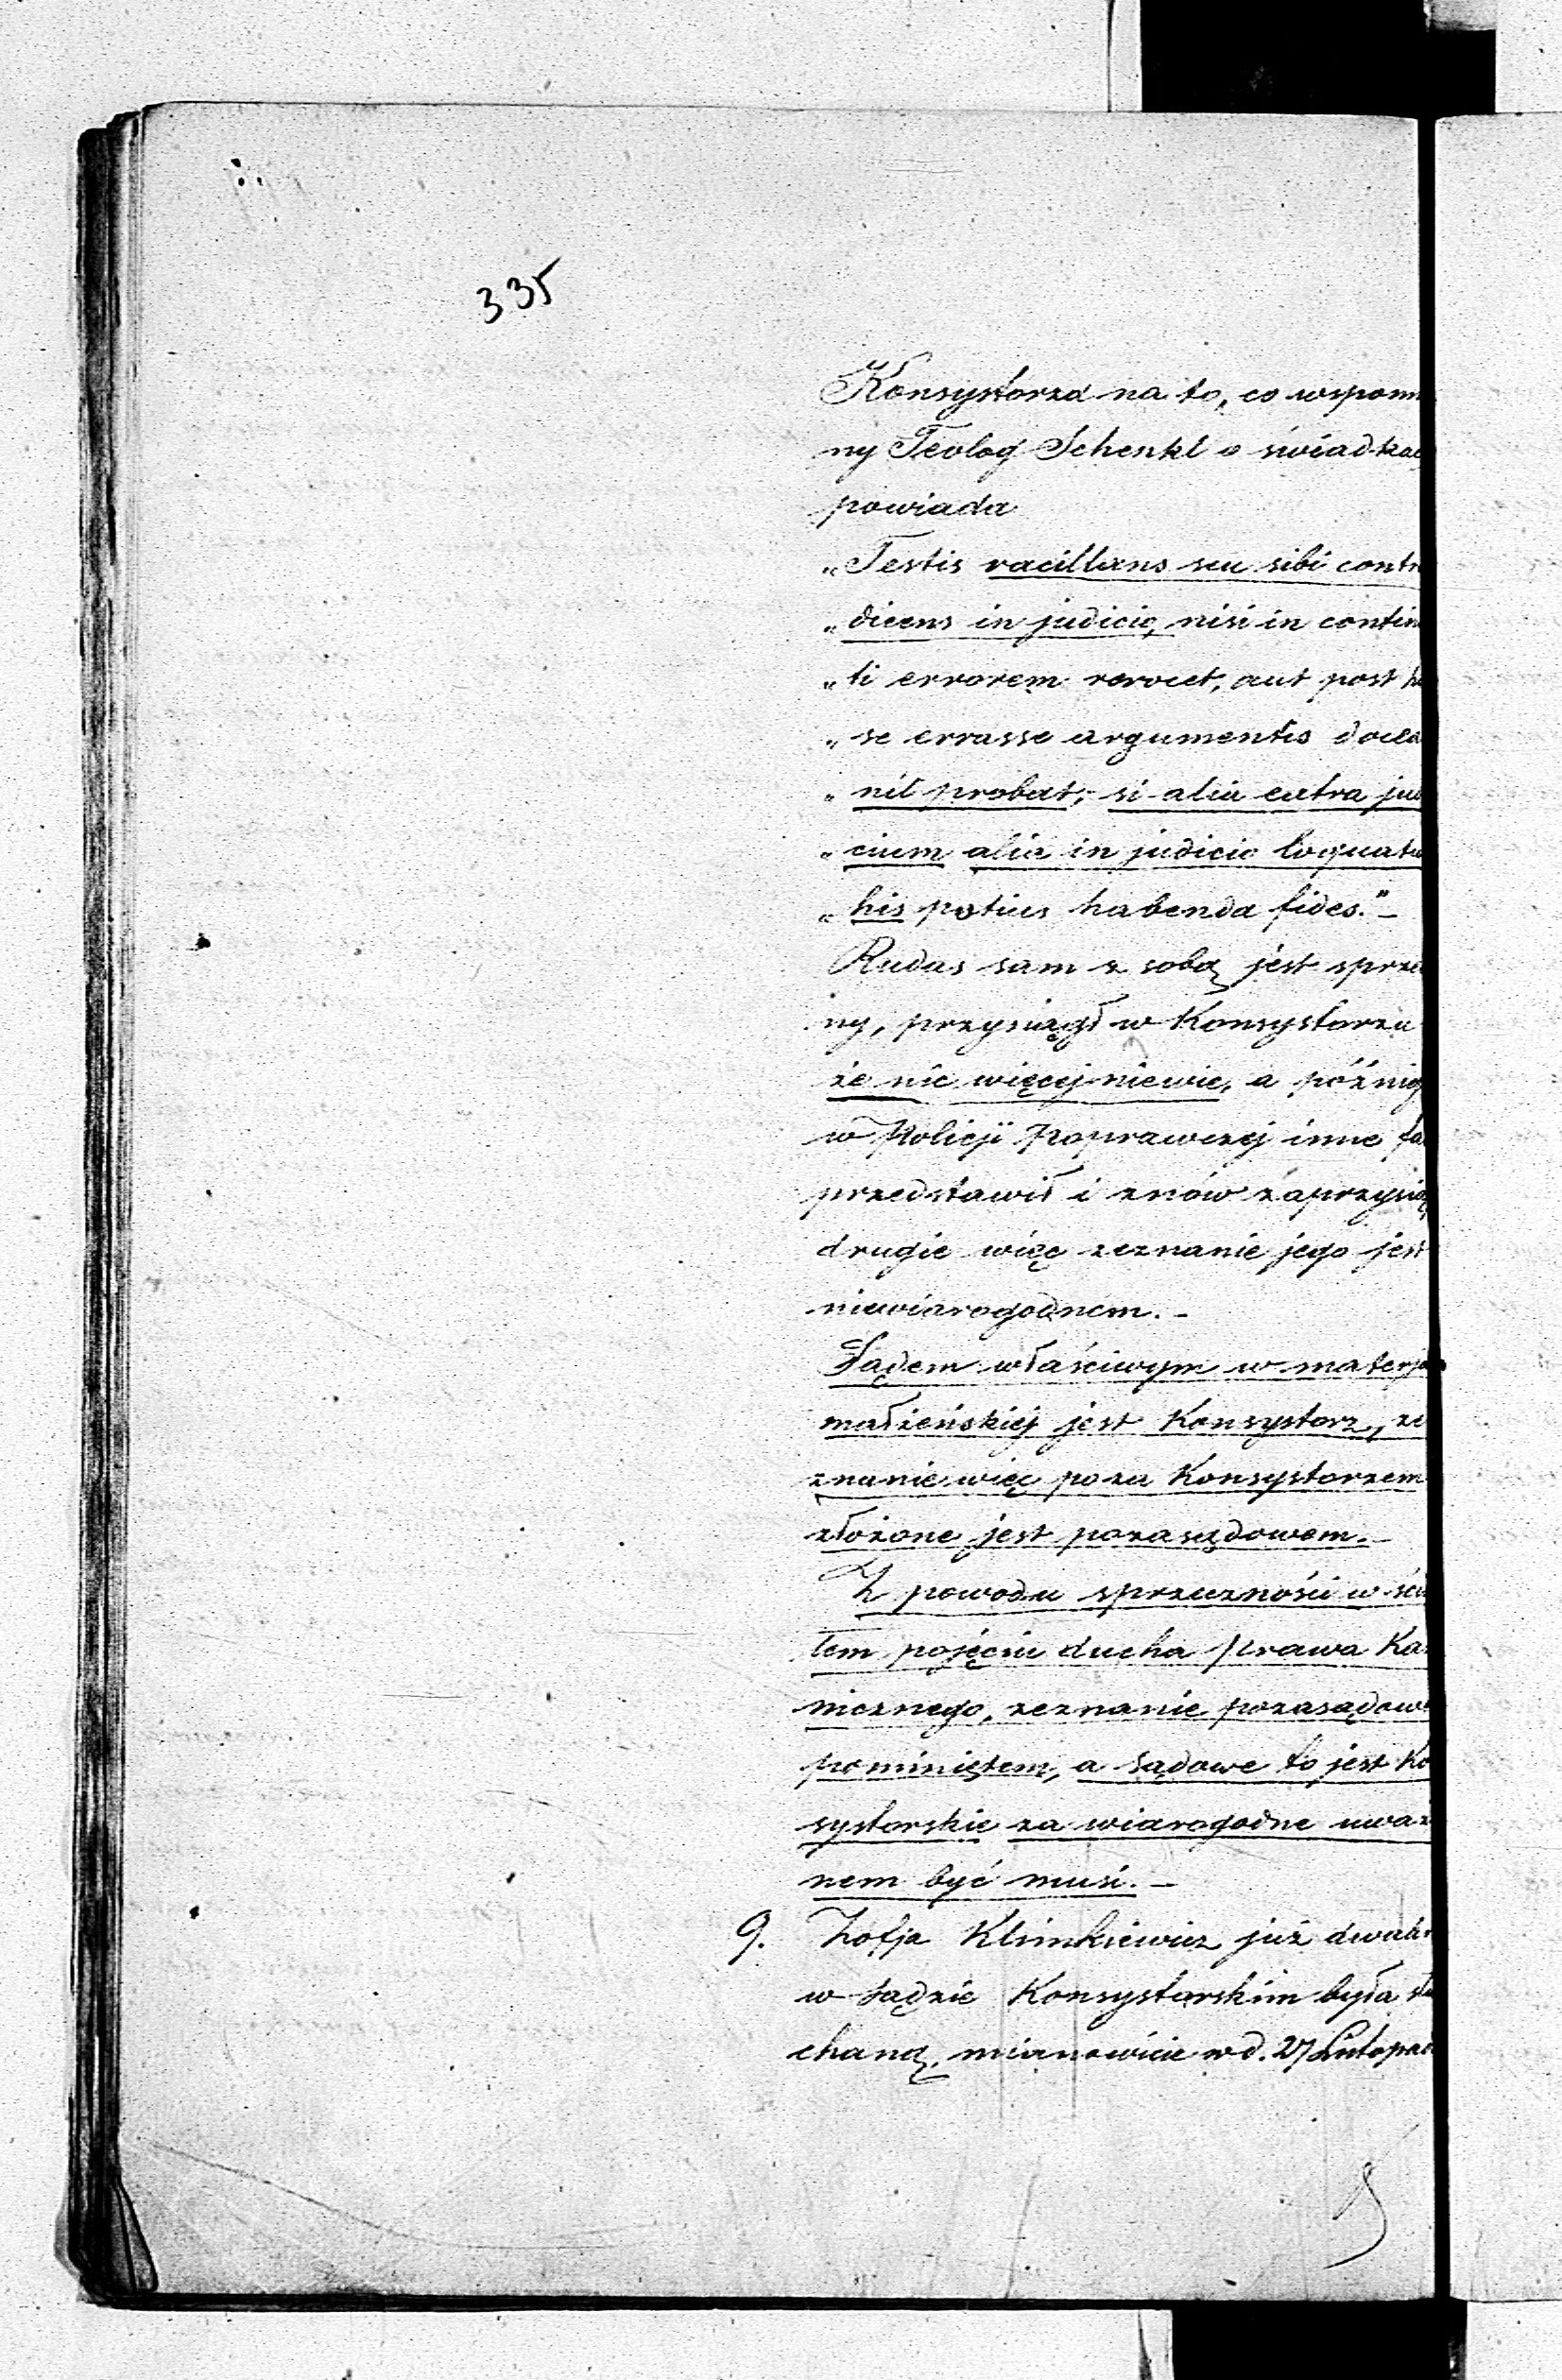 335
Konsystorza na to, co wspomn
ny Teolog Schenkl o świadkac
powiada
„Testis vacillans seu sibi contra
„dicens in judicio, nisi in contin
„ti errorem revocet, aut post h
„se errasse argumentis docea
„nil probat; si alia extra jud
„cium alia in judicio loquatu
„his potius habenda fides."-
Rudas sam z sobą jest sprze
ny, przysiągł w Konsystorzu
że nic więcej niewie, a późnig
w Policji Poprawczej inne fa
przedstawił i znów zaprzysią
drugie więc zeznanie jego jest
niewiarogodnem.-
Sądem właściwym w materja
małżeńskiej jest Konsystorz, ze
znanie więc poza Konsystorzem
złożone jest pozasądowem.-
Z powodu sprzeczności w ści
łem pojęciu ducha Prawa Ka
nicznego, zeznanie pozasądow
pominiętem, a sądowe to jest Ko
systorskie za wiarogodne uważ
nem być musi.-
9. Zofja Klimkiewicz już dwakr
w Sądzie Konsystorskim była słu
chaną, mianowicie w d. 27 Listopad